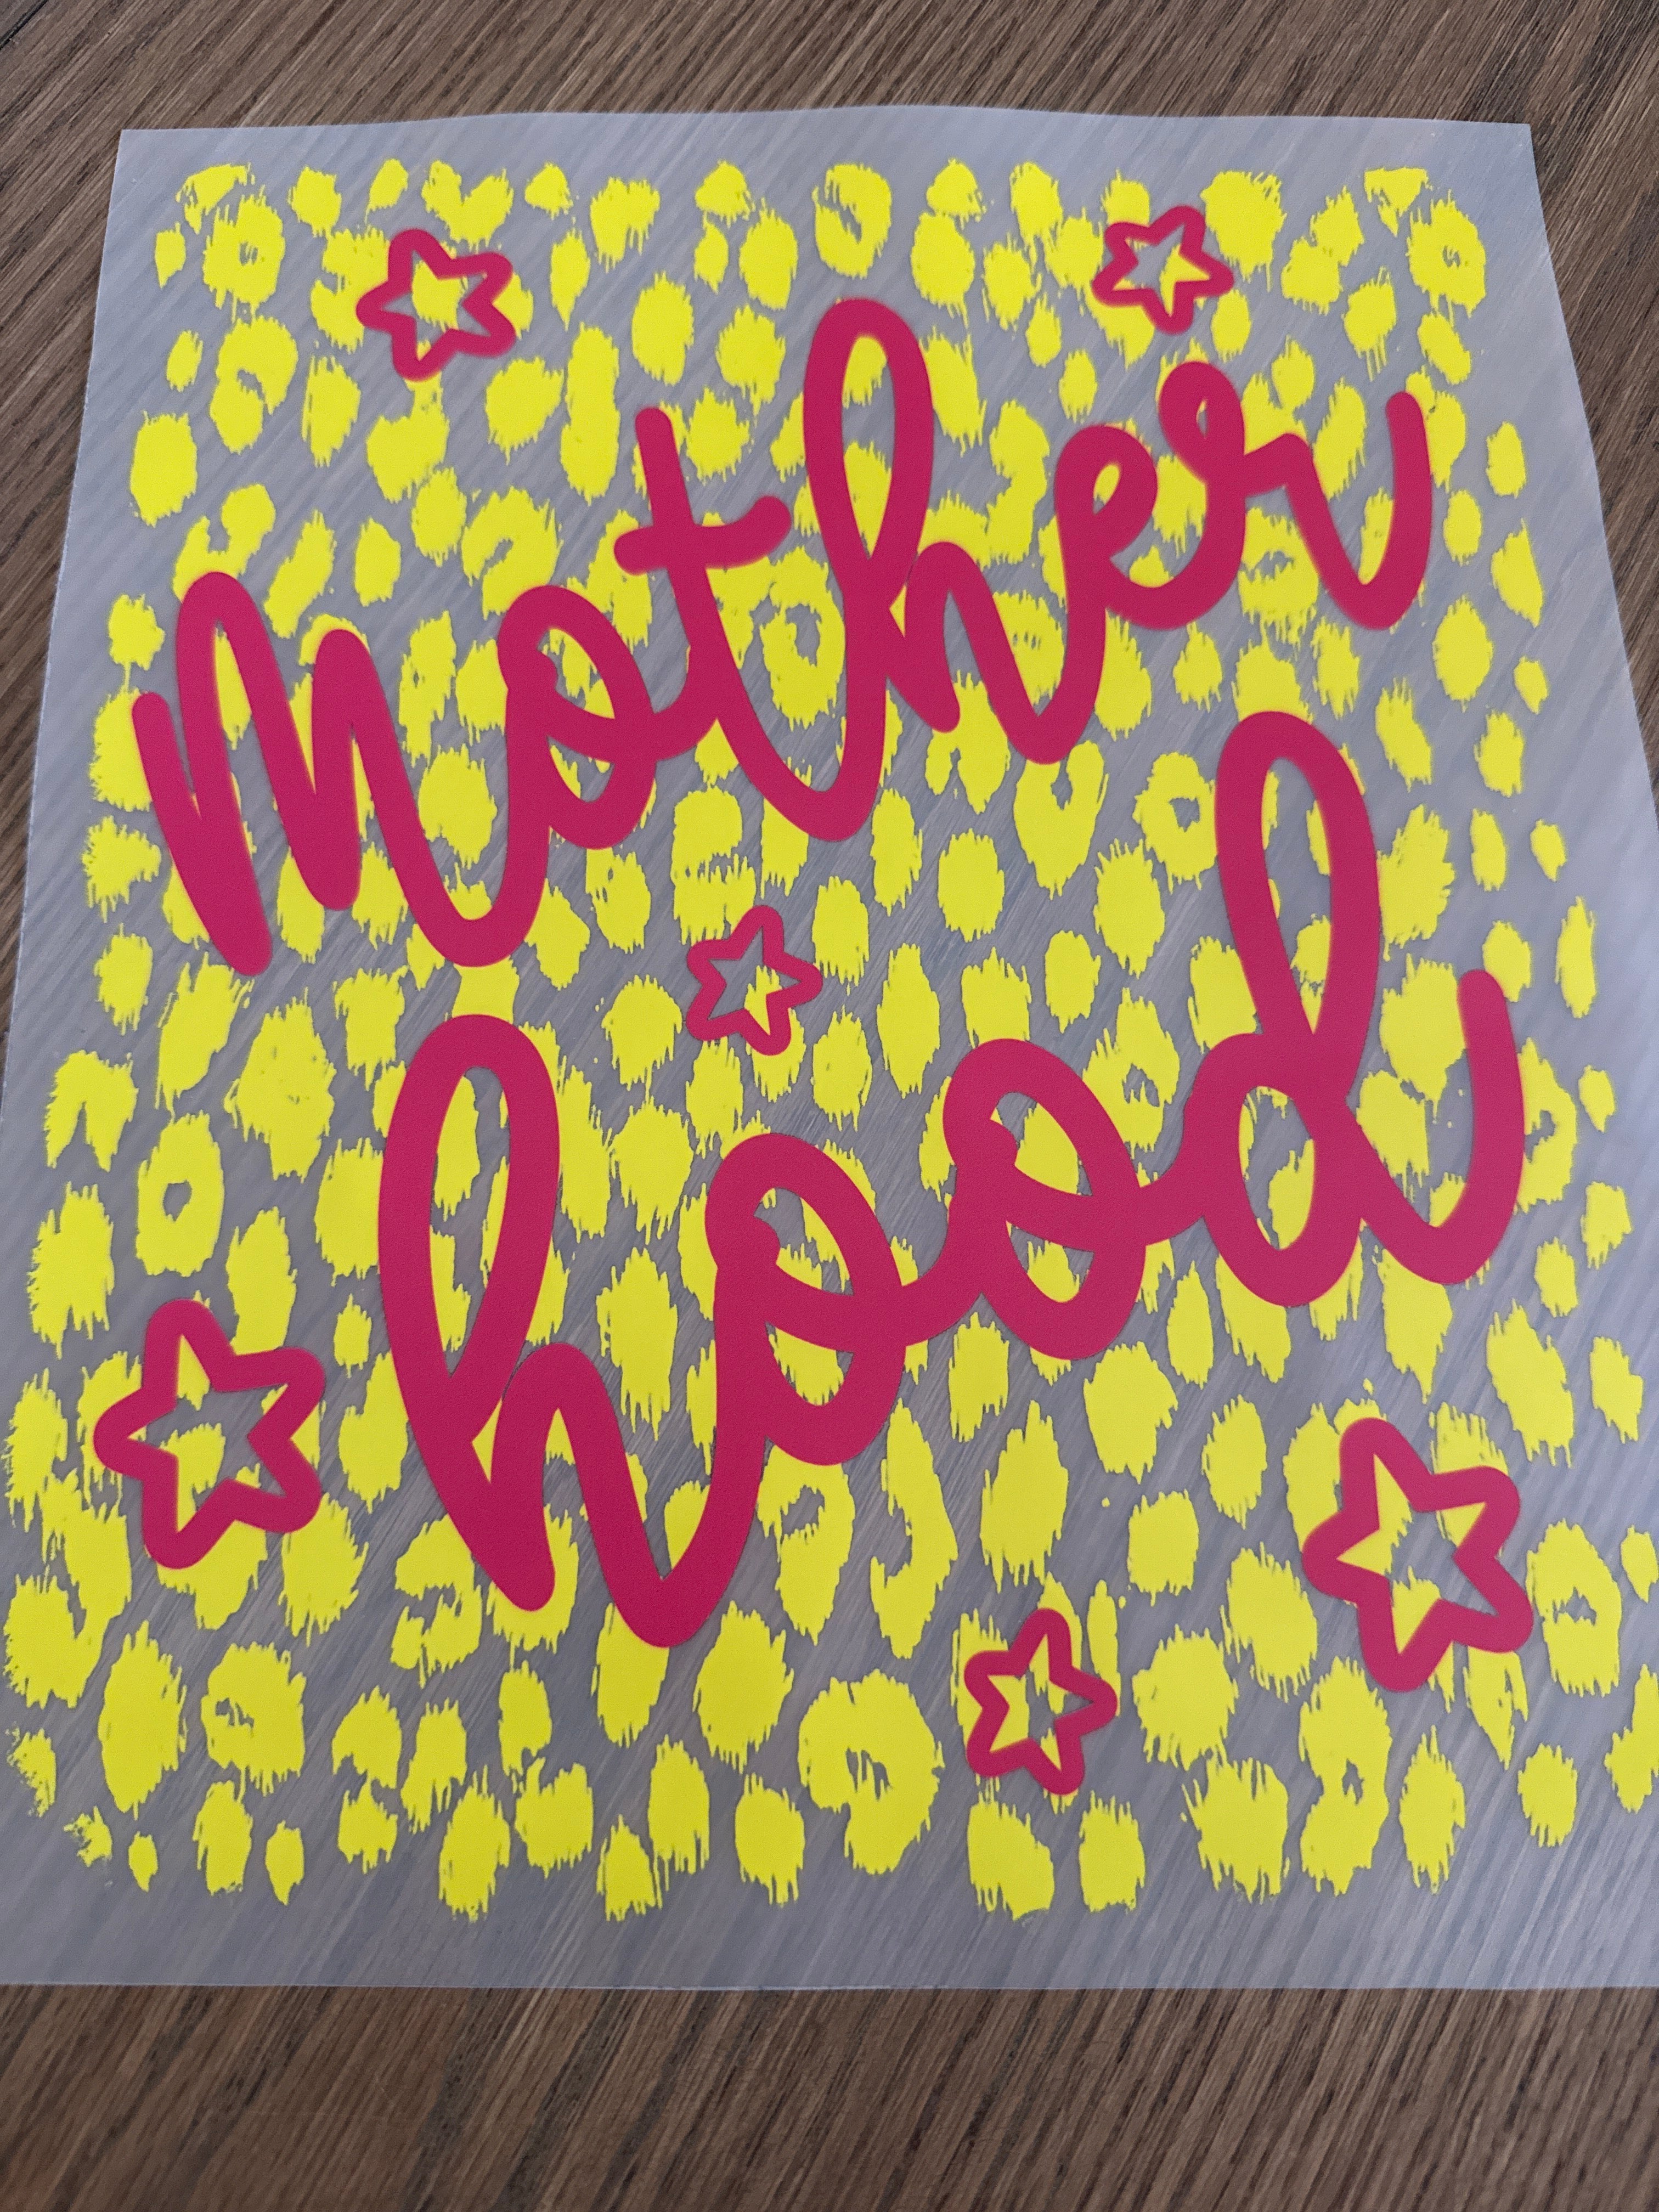 Mother
hood